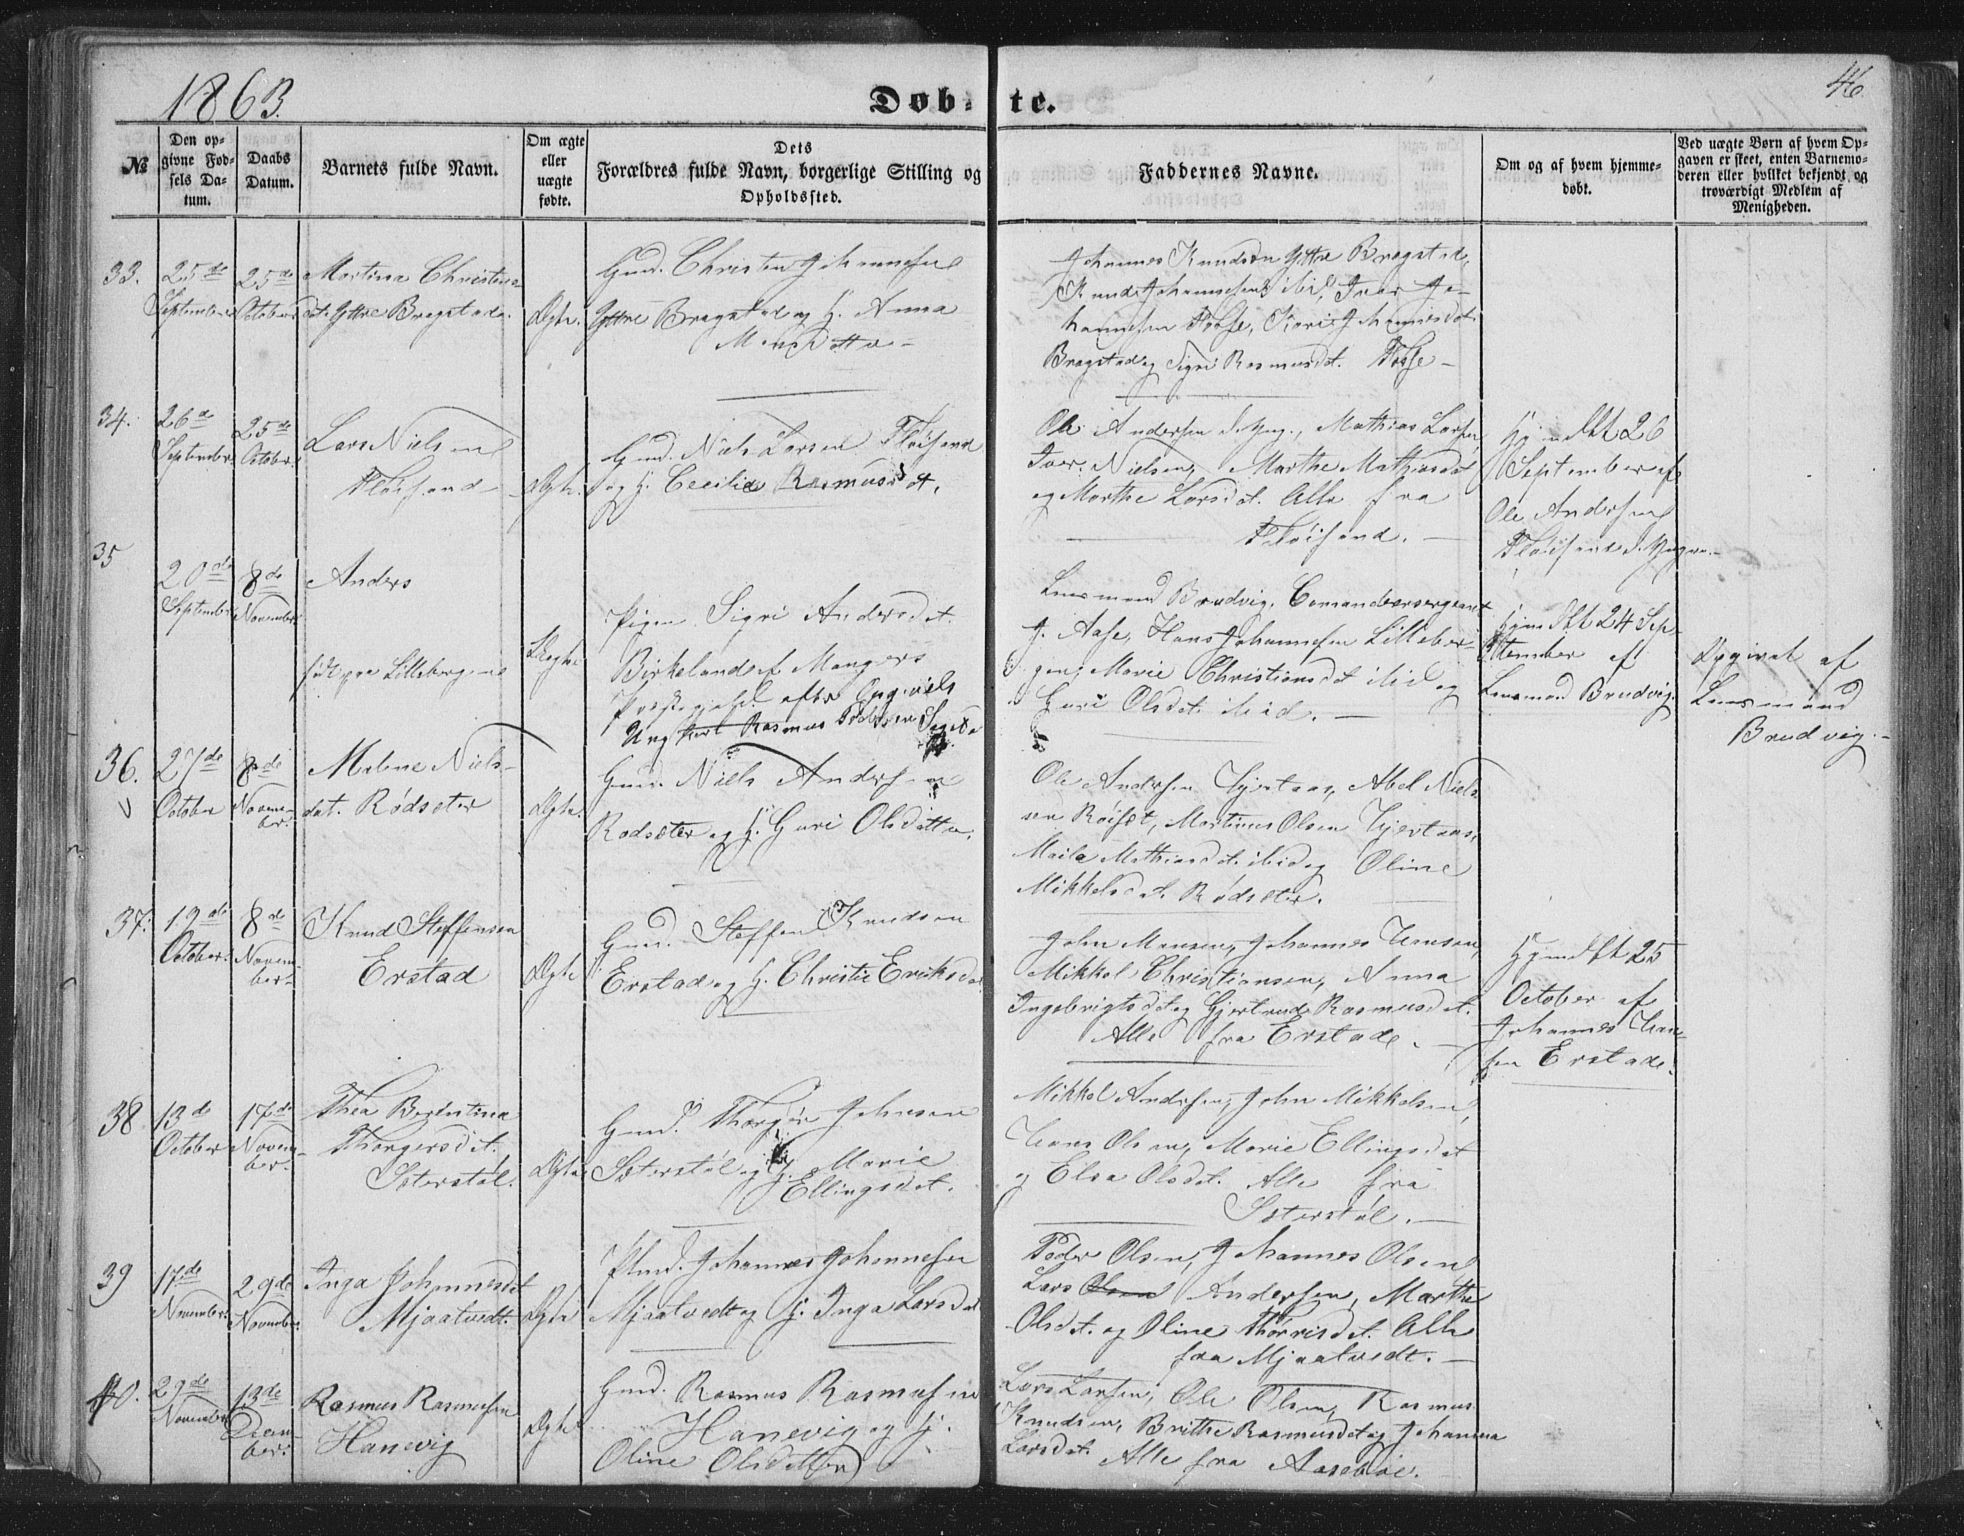 1863.
Døb-te.
46
№
Den op-
givne Fød-
sels Da-
tum.
Daabs
Datum.
Barnets fulde Navn.
Om ægte
eller
uægte
fødte.
Dets
Forældres fulde Navn, borgerlige Stilling og
Opholdssted.
Faddernes Navne.
Om og af hvem hjemme-
døbt.
Ved uægte Børn af hvem Op-
gaven er skeet, enten Barnemo-
deren eller hvilket bekjendt og
troværdigt Medlem af
Menigheden.
33.
25de
September
25de
October
Martina Christens
dt. Yttre Bragstad.
Ægte.
Gmd. Christen Johannesen
Yttre Bragstad og H. Anna
Monsdatter
Johannes Knudsen Yttre Bragstad,
Knud Johannesen ibid, Iver Jo-
hannesen Fosse, Kari Johannesdt.
Bragstad og Sigri Rasmusdt. Fosse
34.
26de
September
25de
October.
Lars Nielsen
Fløisand
Ægte.
Gmd. Niels Larsen Fløisand
og H. Cecilia Rasmusdt.
Ole Andersen d. Yng., Mathias Larsen,
Iver Nielsen, Marthe Mathiasdt.
og Marthe Larsdt. Alle fra
Fløisand.
Hjmdbt 26
September af
Ole Andersen
Fløisand d. Yngre.
35
20de
September
8de
November
Anders
født paa Lillebergen
Uægte
Pigen Sigri Andersdt.
Birkeland af Mangers
Præstegjeld efter Opgivels
Ungkarl Rasmus Pedersen
Lensmand Brudvig, Comandeersergeant
J. Aase, Hans Johannesen Lilleber-
gen, Marie Christiansdt. ibid og
Guri Olsdt. ibid.
Hjmdbt 24 Sep-
tember af
Lensmand Brudvig.
Opgivet af
Lensmand
Brudvig.
36.
27de
October
8de
Novem-
ber.
Malene Niels-
dat. Rødseter
Ægte.
Gmd. Niels Andersen
Rødseter og H. Guri Olsdatter.
Ole Andersen Hjertaas, Abel Niels-
en Røiset, Martinus Olsen Hjertaas,
Mathiasdt. ibid og Oline
Mikkelsdt. Rødseter.
37.
19de
October.
8de
Novem-
ber.
Knud Steffensen
Erstad
Ægte
Gmd. Steffen Knudsen
Erstad og H. Christie Eriksdat
John Monsen, Johannes Hansen,
Mikkel Christiansen, Anna
Ingebrigtsdt. og Gjertrude Rasmusdt.
Alle fra Erstad.
Hjmdbt 25
October af
Johannes Han-
sen Erstad.
38
13de
October
17de
Novem-
ber.
Thea Berintina
Thorgersdt.
Sæterstøl.
Ægte
Gmd. Thorger Johnsen
Sæterstøl og H. Marie
Ellingsdt.
Mikkel Andersen, John Mikkelsen,
Hans Olsen, Marie Ellingsdt
og Elsa Olsdt. Alle fra
Sæterstøl.
39
17de
November.
29de
November.
Inga Johannesdt
Mjaatvedt.
Ægte
Plmd. Johannes Johannesen
Mjaatvedt og H. Inga Larsdat
Peder Olsen, Johannes Olsen
Lars Olsen Andersen, Marthe
Olsdt. og Oline Thorrisdt. Alle
fra Mjaatvedt.
40.
29de
November
13de
Decem-
ber.
Rasmus Rasmusen
Hanevig
Ægte
Gmd. Rasmus Rasmusen
Hanevig og H.
Oline Olsdatter
Lars Larsen, Ole Olsen, Rasmus
Knudsen, Brithe Rasmusdt. og Johanna
Larsdt. Alle fra Aasebøe.